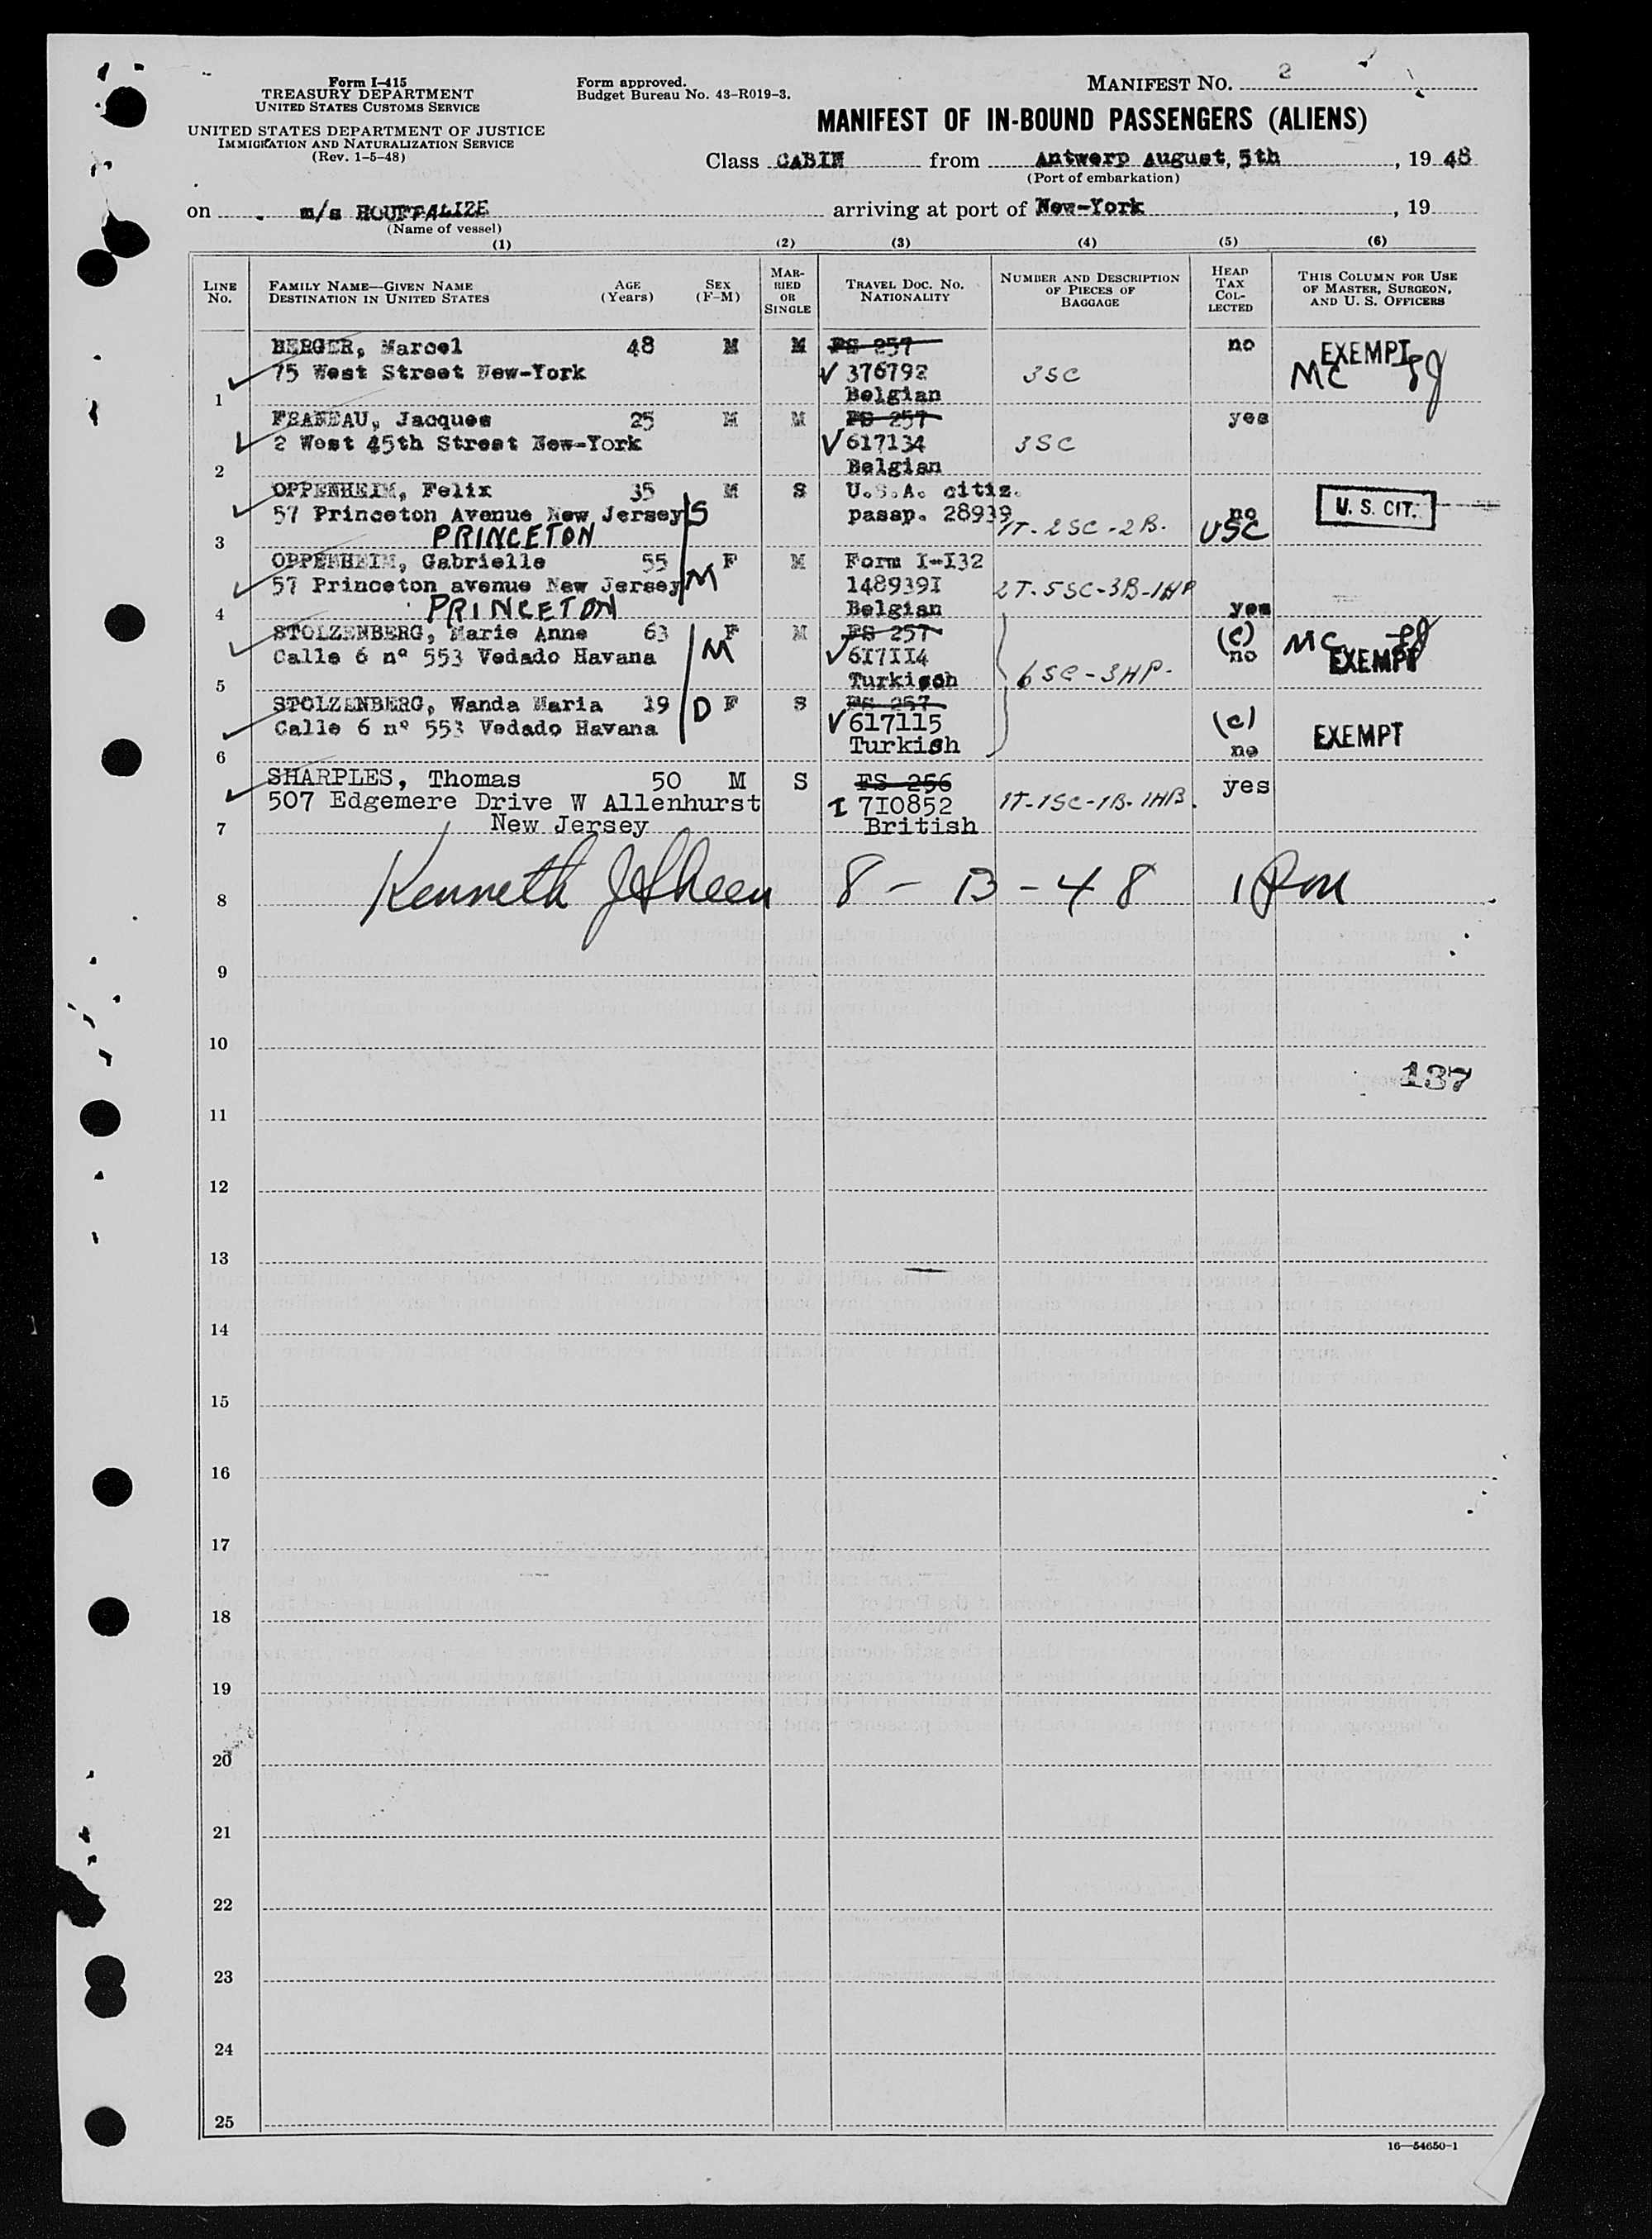 Form I-415
TREASURY DEPARTMENT
UNITED STATES CUSTOMS SERVICE
UNITED STATES DEPARTMENT OF JUSTICE
IMMIGRATION AND NATURALIZATION SERVICE
(Rev. 1-5-48)
Form approved.
Budget Bureau No. 43-R019-3.
MANIFEST NO. 2
MANIFEST OF IN-BOUND PASSENGERS (ALIENS)
Class CABIN from Antwerp August, 5th, 19 48
(Port of embarkation)
on m/s HOUFFALIZE arriving at port of New-York, 19
(Name of vessel)
(1) (2) (3) (4) (5) (6)
LINE No.
FAMILY NAME—GIVEN NAME
DESTINATION IN UNITED STATES
AGE (Years)
SEX (F-M)
MARRIED OR SINGLE
TRAVEL DOC. NO.
NATIONALITY
NUMBER AND DESCRIPTION OF PIECES OF BAGGAGE
HEAD TAX COLLECTED
THIS COLUMN FOR USE OF MASTER, SURGEON, AND U. S. OFFICERS
BERGER, Marcel 48 M M FS 257 no EXEMPT
75 West Street New-York 376792 3SC MC
1 Belgian
FRANEAU, Jacques 25 M M FS 257 yes
2 West 45th Street New-York 617134 3SC
2 Belgian
OPPENHEIM, Felix 35 M S U.S.A. citiz.
57 Princeton Avenue New Jersey S passp. 28939 1T-2SC-2B. no U. S. CIT.
3 PRINCETON USC
OPPENHEIM, Gabrielle 55 F M Form I-I32
57 Princeton avenue New Jersey M 148939I 2T-5SC-3B-1HP
4 PRINCETON Belgian yes
STOLZENBERG, Marie Anne 63 F M FS 257 (c) MC
Calle 6 nº 553 Vedado Havana M 6I7II4 no EXEMPT
5 Turkisch 6SC-3HP-
STOLZENBERG, Wanda Maria 19 D F S FS 257
Calle 6 nº 553 Vedado Havana 617115 (c) EXEMPT
6 Turkish no
SHARPLES, Thomas 50 M S FS 256 yes
507 Edgemere Drive W Allenhurst I 7I0852 1T-1SC-1B-1HB.
7 New Jersey British
8 Kenneth 8-13-48
9
10
137
11
12
13
14
15
16
17
18
19
20
21
22
23
24
25
16—54650-1